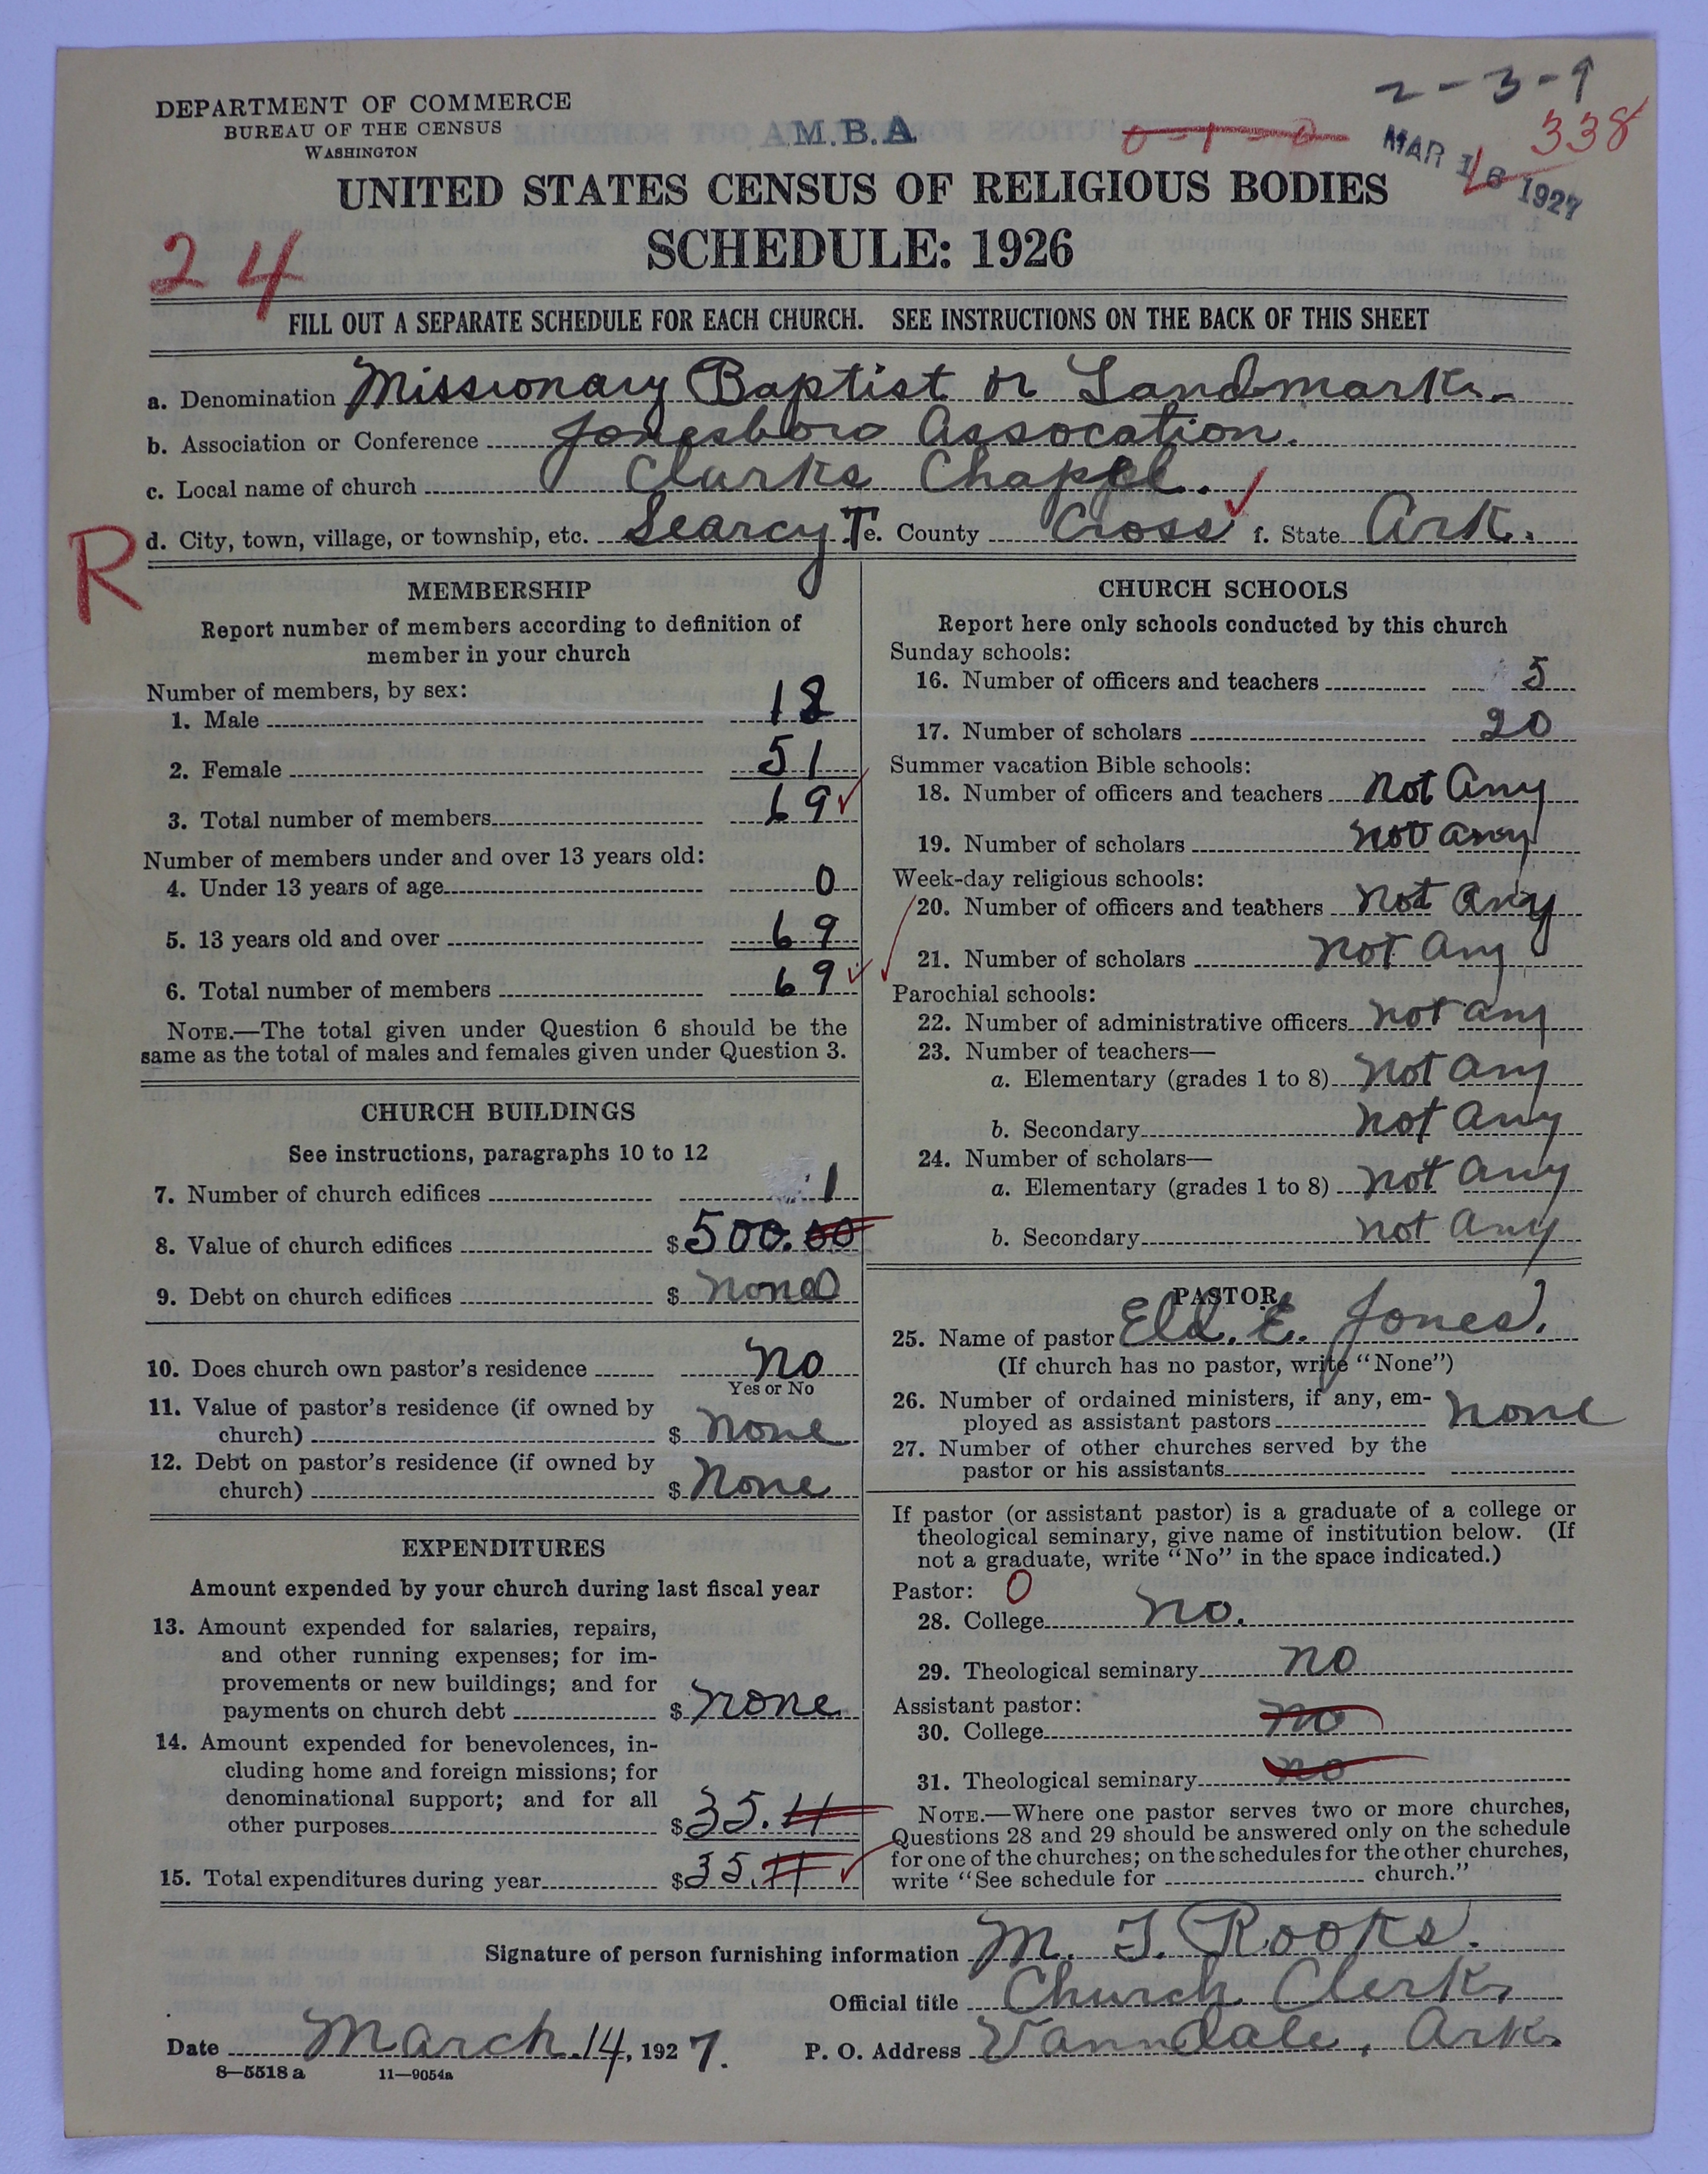 DEPARTMENT OF COMMERCE
BUREAU OF THE CENSUS
WASHINGTON
A.M.B.A
0-1-0
2-3-9
338
MAR 16 1927
UNITED STATES CENSUS OF RELIGIOUS BODIES
SCHEDULE: 1926
24
FILL OUT A SEPARATE SCHEDULE FOR EACH CHURCH. SEE INSTRUCTIONS ON THE BACK OF THIS SHEET
a. Denomination Missionary Baptist or Landmark.
b. Association or Conference Jonesboro Assocation.
c. Local name of church Clarks Chapel.
R
d. City, town, village, or township, etc. Searcy T e. County Cross f. State Ark.
MEMBERSHIP
Report number of members according to definition of
member in your church
Number of members, by sex:
1. Male 18
2. Female 51
3. Total number of members 69
Number of members under and over 13 years old:
4. Under 13 years of age 0
5. 13 years old and over 69
6. Total number of members 69
NOTE.—The total given under Question 6 should be the
same as the total of males and females given under Question 3.
CHURCH BUILDINGS
See instructions, paragraphs 10 to 12
7. Number of church edifices 1
8. Value of church edifices $ 500.00
9. Debt on church edifices $ none
10. Does church own pastor's residence No
Yes or No
11. Value of pastor's residence (if owned by
church) $ none
12. Debt on pastor's residence (if owned by
church) $ None
EXPENDITURES
Amount expended by your church during last fiscal year
13. Amount expended for salaries, repairs,
and other running expenses; for im-
provements or new buildings; and for
payments on church debt $ none
14. Amount expended for benevolences, in-
cluding home and foreign missions; for
denominational support; and for all
other purposes $ 35.11
15. Total expenditures during year $ 35.11
CHURCH SCHOOLS
Report here only schools conducted by this church
Sunday schools:
16. Number of officers and teachers 5
17. Number of scholars 20
Summer vacation Bible schools:
18. Number of officers and teachers not Any
19. Number of scholars not any
Week-day religious schools:
20. Number of officers and teachers not Any
21. Number of scholars not Any
Parochial schools:
22. Number of administrative officers not any
23. Number of teachers—
a. Elementary (grades 1 to 8) not Any
b. Secondary not Any
24. Number of scholars—
a. Elementary (grades 1 to 8) not Any
b. Secondary not Any
PASTOR
25. Name of pastor Eld. E. Jones.
(If church has no pastor, write "None")
26. Number of ordained ministers, if any, em-
ployed as assistant pastors none
27. Number of other churches served by the
pastor or his assistants
If pastor (or assistant pastor) is a graduate of a college or
theological seminary, give name of institution below. (If
not a graduate, write "No" in the space indicated.)
Pastor: 0
28. College no.
29. Theological seminary no
Assistant pastor:
30. College no
31. Theological seminary no
NOTE.—Where one pastor serves two or more churches,
Questions 28 and 29 should be answered only on the schedule
for one of the churches; on the schedules for the other churches,
write "See schedule for church."
Signature of person furnishing information M. T. Rooks.
Official title Church Clerk,
Date March 14, 1927. P. O. Address Vanndale, Ark.
8—5518 a 11—9054a